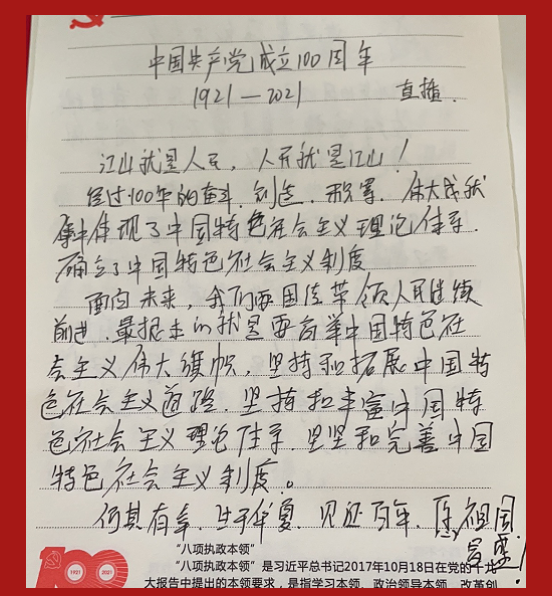 中国共产党成立100周年
1921—2021 直播.
江山就是人民，人民就是江山！
经过100年的奋斗、创造、积累．伟大成就
集中体现了中国特色社会主义理论体系．
确立了中国特色社会主义制度
面向未来，我们要团结带领人民继续
前进．最根本的就是要高举中国特色社
会主义伟大旗帜，坚持和拓展中国特
色社会主义道路．坚持和丰富中国特
色社会主义理论体系．坚和完善中国
特色社会主义制度。
何其有幸．生于华夏．见证百年．愿祖国
富强！
“八项执政本领”
100 1921 2021 “八项执政本领”是习近平总书记2017年10月18日在党的十九
大报告中提出的本领要求，是指学习本领、政治领导本领、改革创